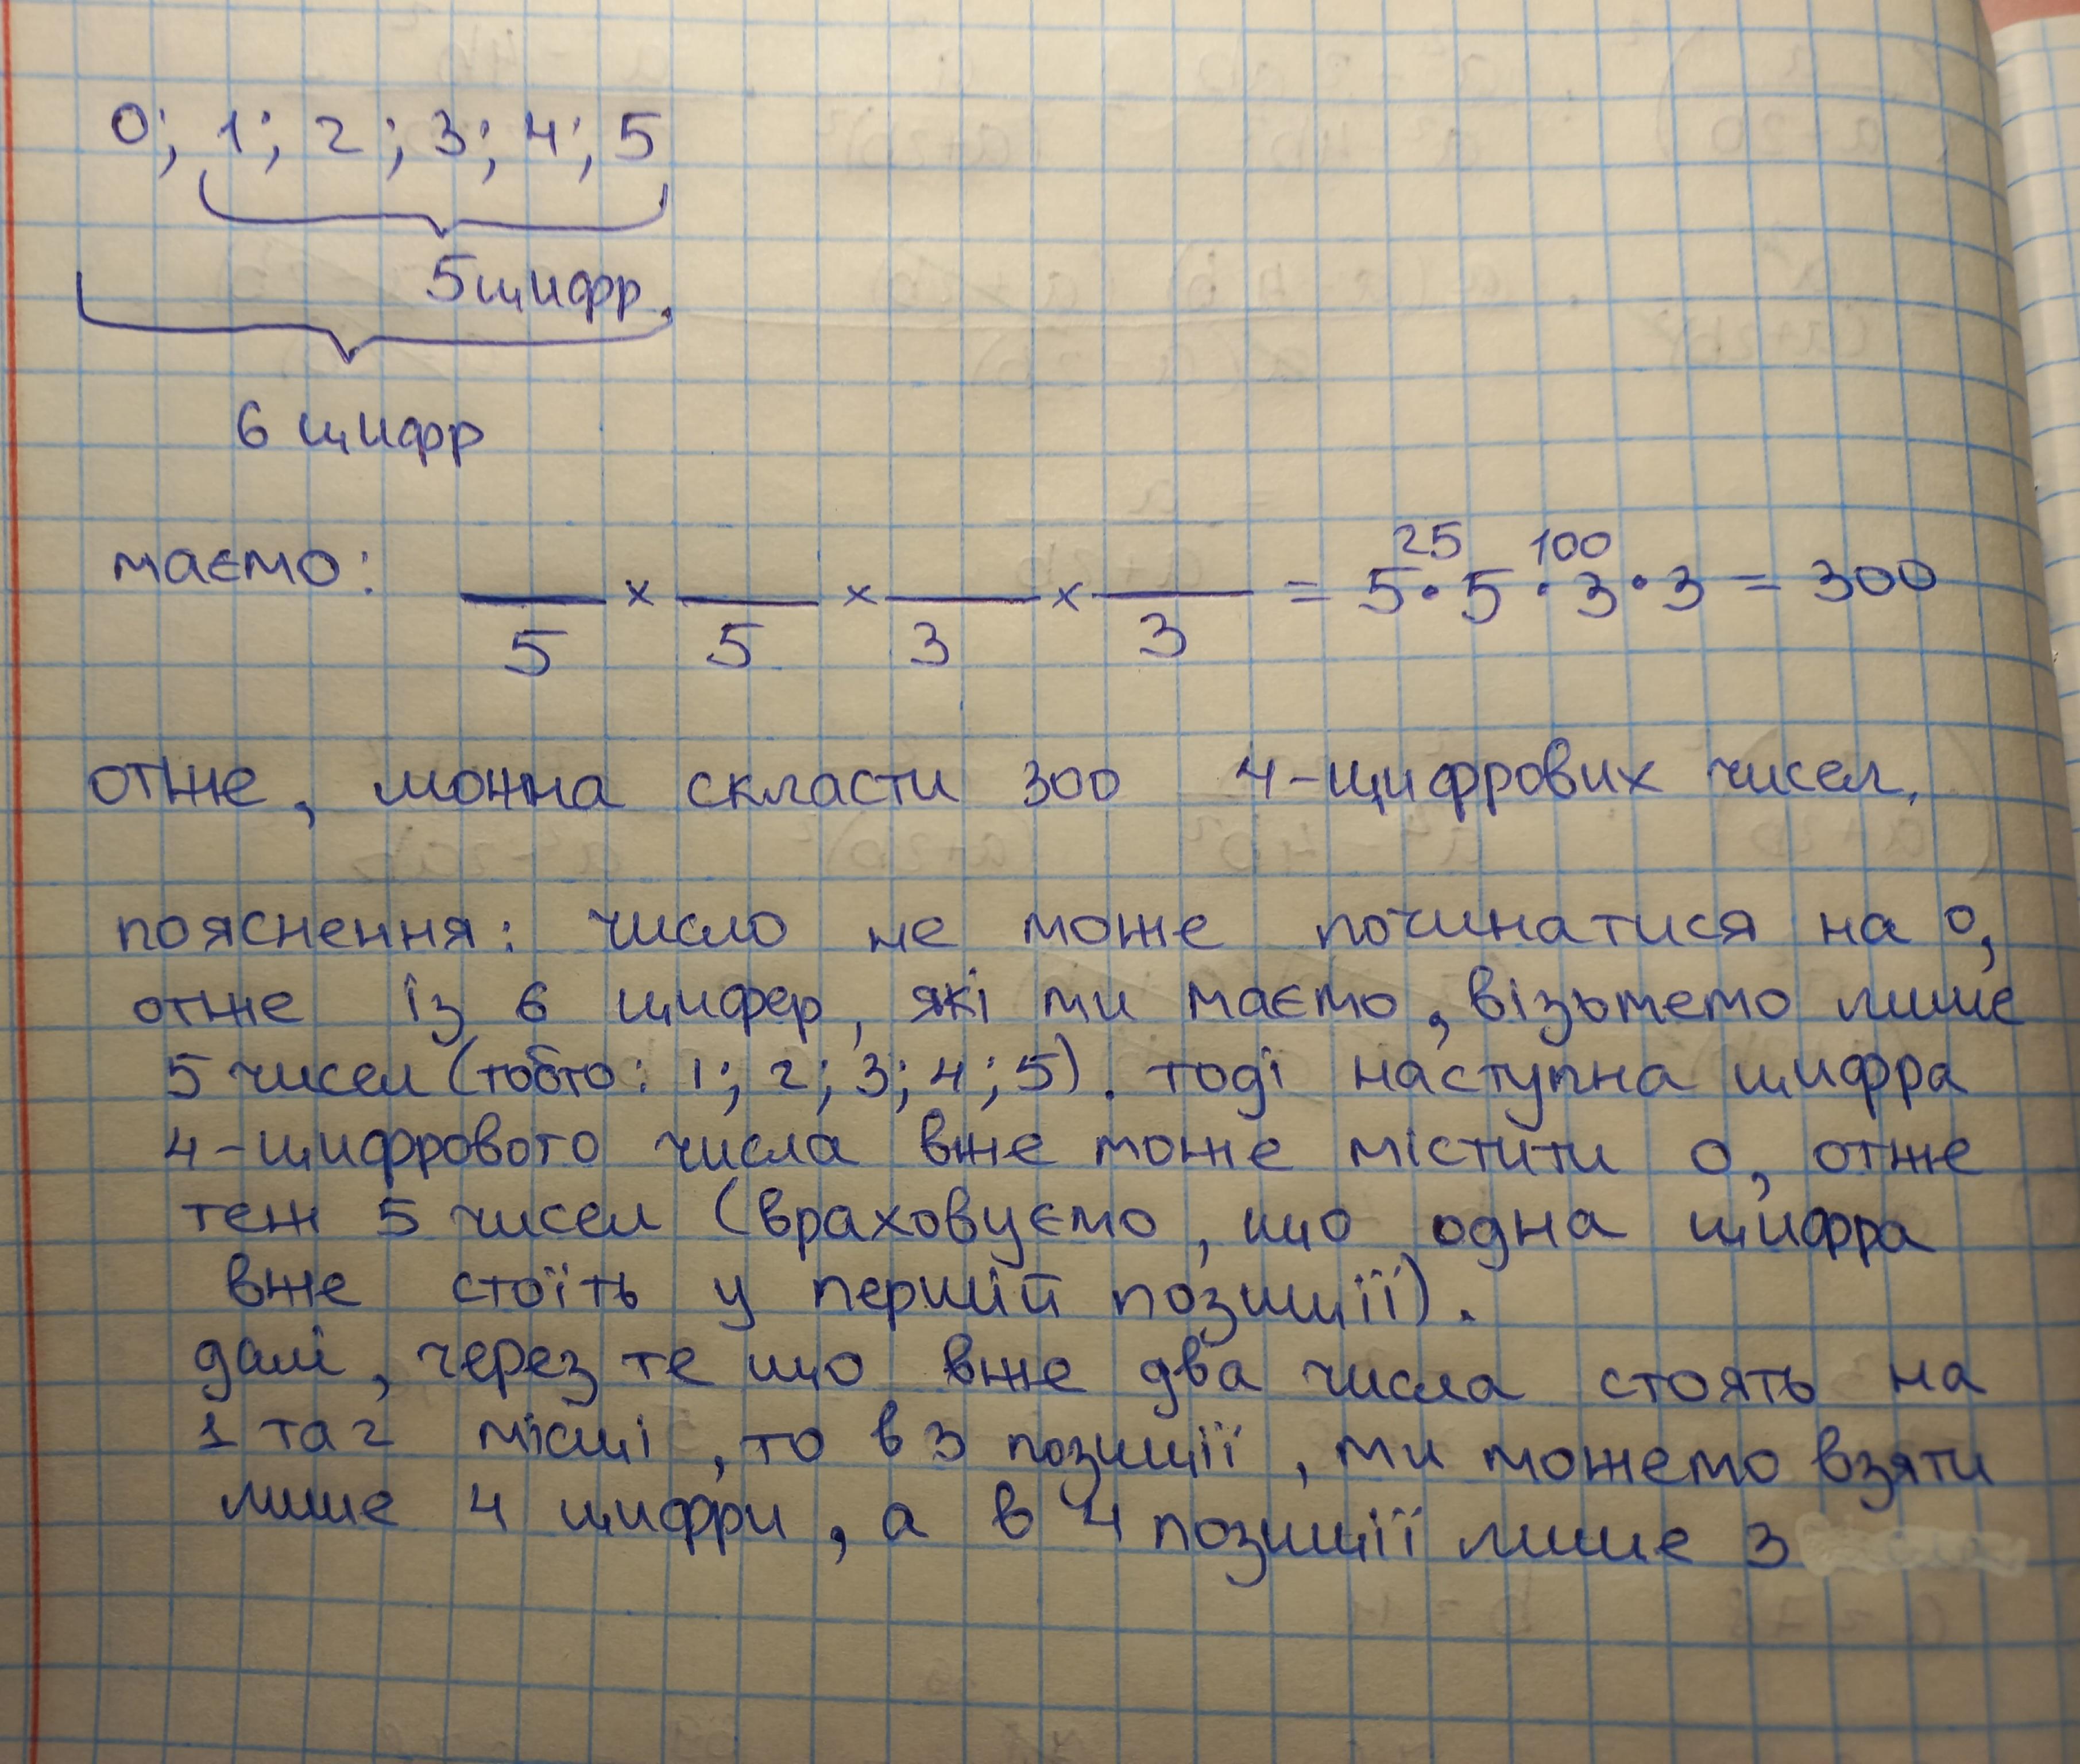 0; 1; 2; 3; 4; 5
5 цифр.
6 цифр
маємо: __ × __ × __ × __ = 5·5·3·3 = 300
25 100
5 5 3 3
отже, можна скласти 300 4-цифрових чисел.
пояснення: число не може починатися на 0,
отже із 6 цифер, які ми маємо, візьмемо лише
5 чисел (тобто: 1; 2; 3; 4; 5). тоді наступна цифра
4-цифрового числа вже може містити 0, отже
теж 5 чисел (враховуємо, що одна цифра
вже стоїть у першій позиції).
далі, через те що вже два числа стоять на
1 та 2 місці, то в 3 позиції, ми можемо взяти
лише 4 цифри, а в 4 позиції лише 3